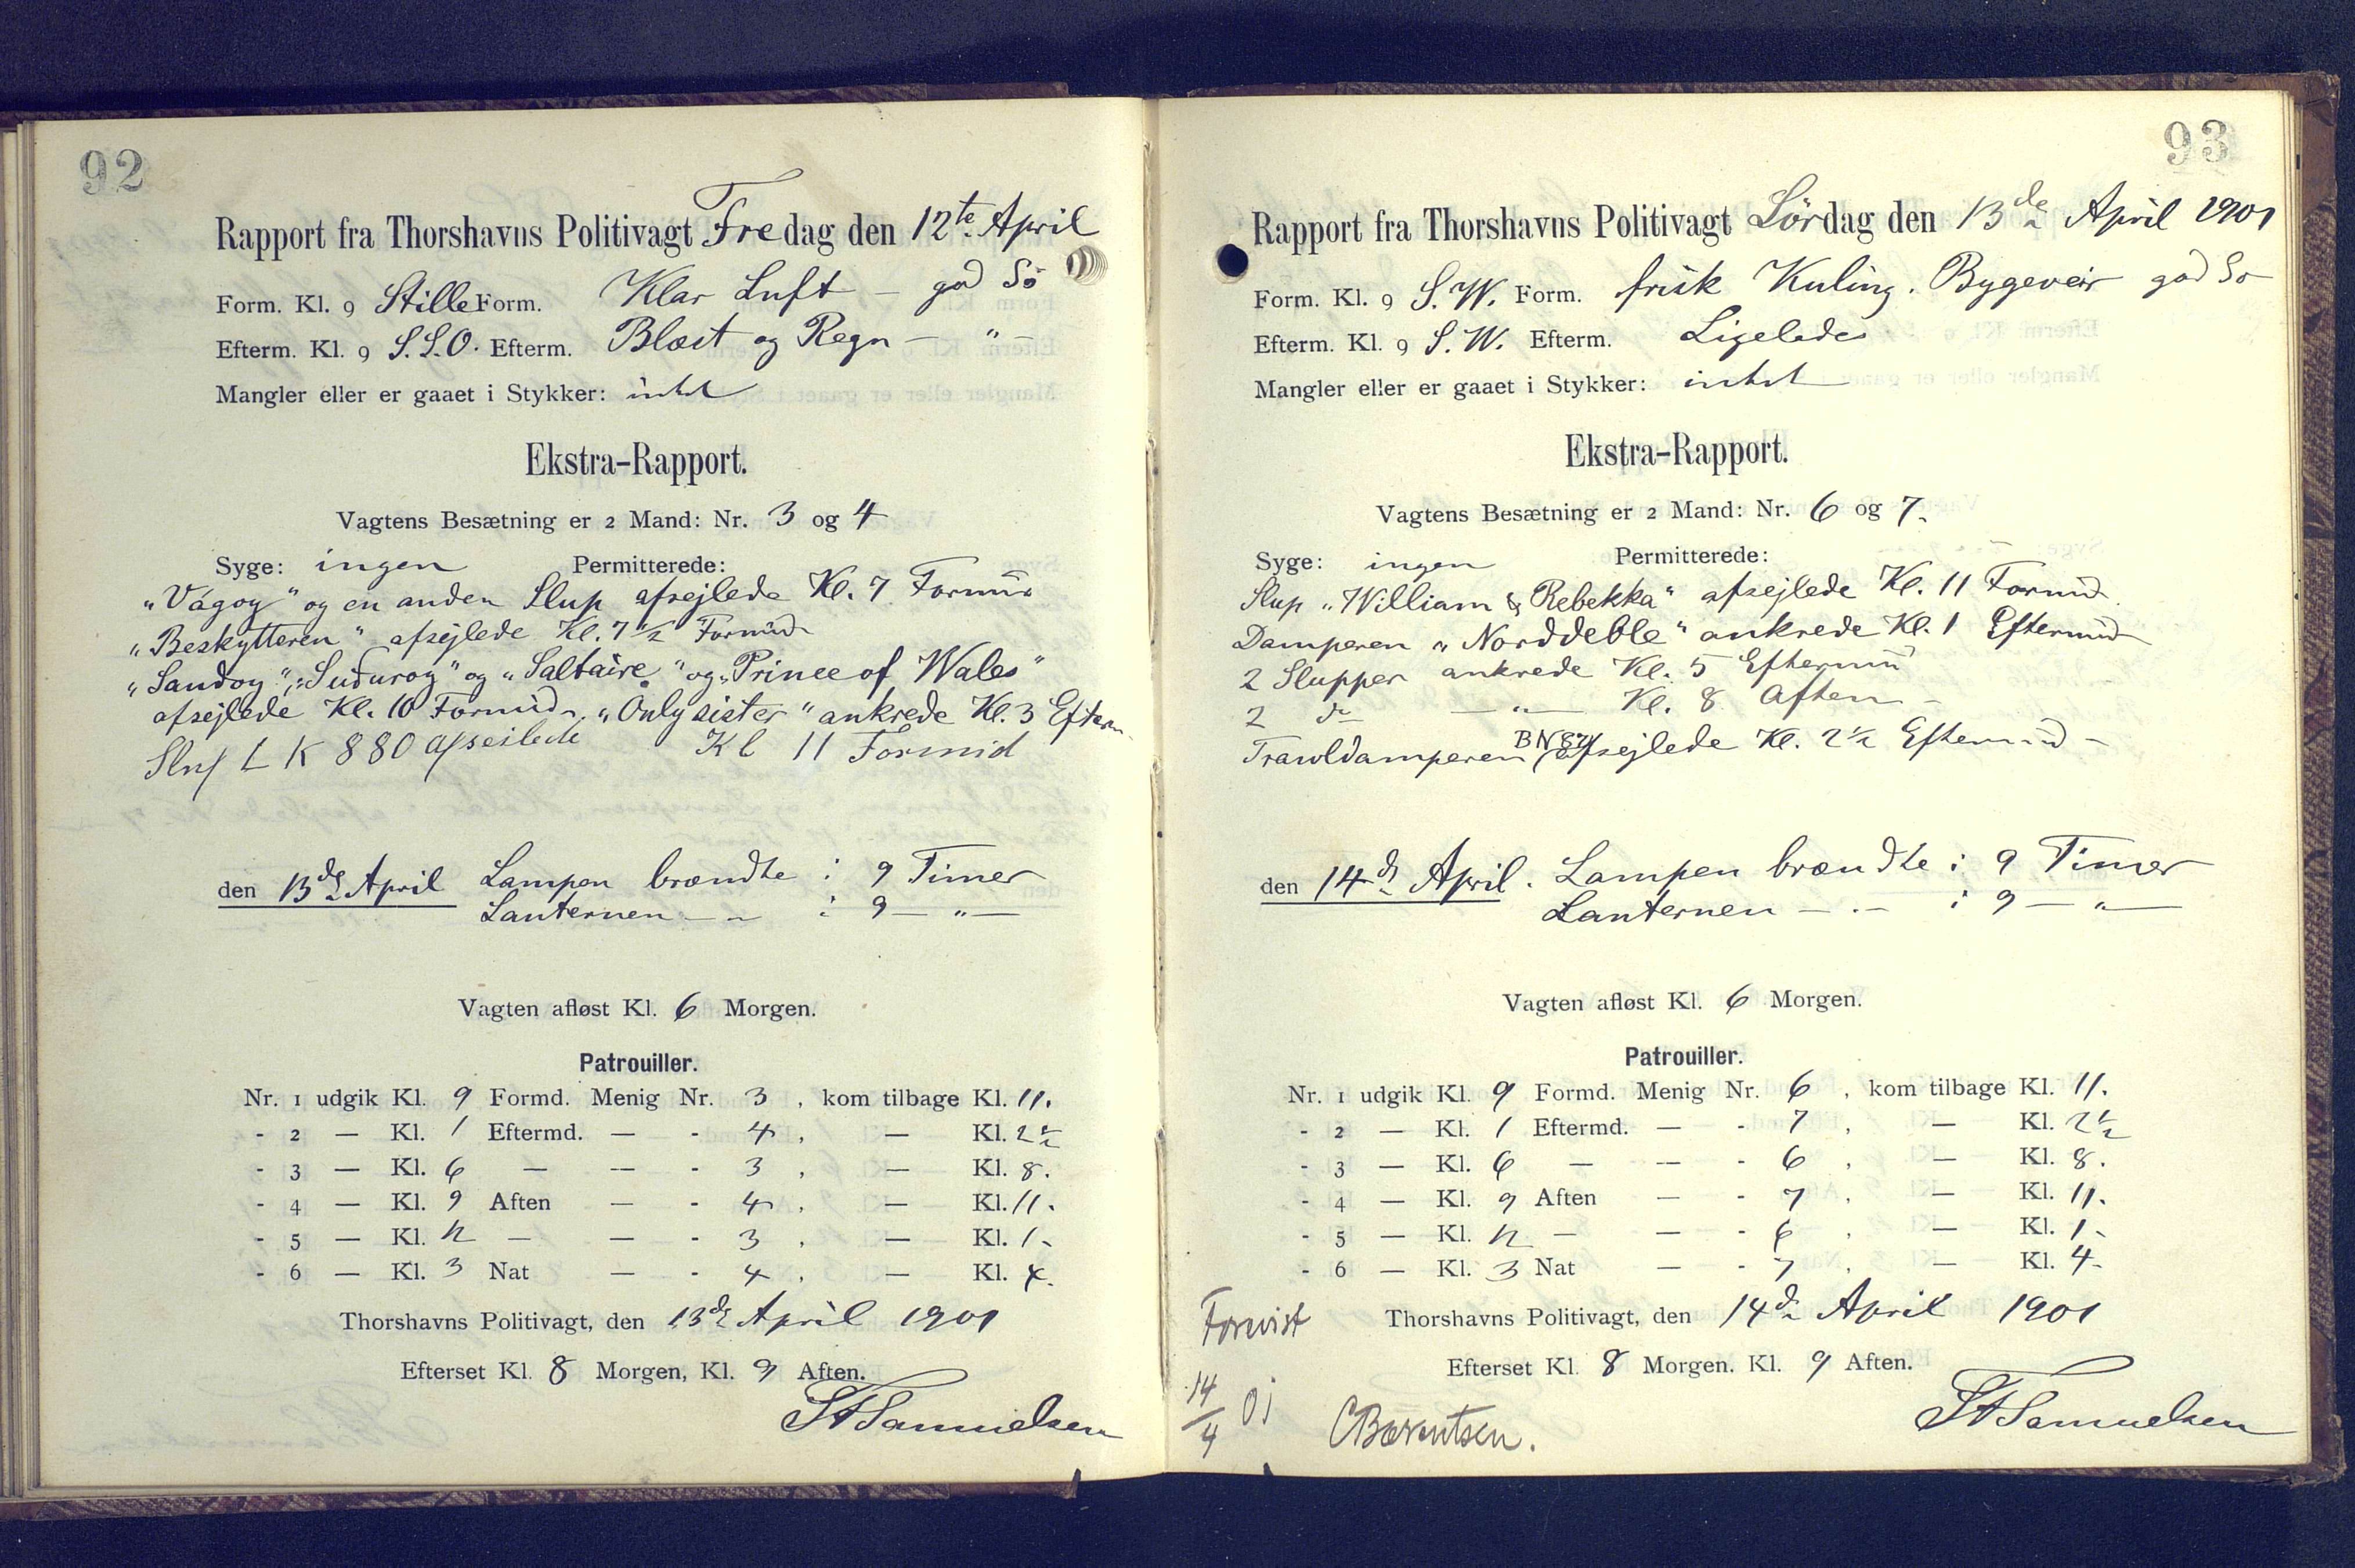 92
Rapport fra Thorshavns Politivagt Fredag den 12te April
Form. Kl. 9 Stille Form. Klar Luft — god Sö
Efterm. Kl. 9 S.S.O. Efterm. Blæst og Regn — " —
Mangler eller er gaaet i Stykker: intet
Ekstra-Rapport.
Vagtens Besætning er 2 Mand: Nr. 3 og 4
Syge: ingen Permitterede:
"Vágoy" og en anden Slup afsejlede Kl. 7 Formid
"Beskytteren" afsejlede Kl. 7 1/2 Formid
"Sandoy", "Suduroy" og "Saltaire" og "Prince of Wales"
afsejlede Kl. 10 Formid. "Only sister" ankrede Kl. 3 Efterm
Slup L K 880 afseilede Kl 11 Formid
den 13de April Lampen brændte i 9 Timer
Lanternen — " — i 9 — " —
Vagten afløst Kl. 6 Morgen.
Patrouiller.
Nr. 1 udgik Kl. 9 Formd. Menig Nr. 3, kom tilbage Kl. 11.
- 2 — Kl. 1 Eftermd. — - 4, — Kl. 2 1/2
- 3 — Kl. 6 — — - 3, — Kl. 8.
- 4 — Kl. 9 Aften — - 4, — Kl. 11.
- 5 — Kl. 12 — — - 3, — Kl. 1-
- 6 — Kl. 3 Nat — - 4, — Kl. 4.
Thorshavns Politivagt, den 13de April 1901
Efterset Kl. 8 Morgen, Kl. 9 Aften.
Samuelsen
93
Rapport fra Thorshavns Politivagt Lördag den 13de April 1901
Form. Kl. 9 S.W. Form. frisk Kuling. Bygeveir god Sö
Efterm. Kl. 9 S.W. Efterm. Ligeledes
Mangler eller er gaaet i Stykker: intet
Ekstra-Rapport.
Vagtens Besætning er 2 Mand: Nr. 6 og 7.
Syge: ingen Permitterede:
Slup "William & Rebekka" afsejlede Kl. 11 Formid.
Damperen "Norddeble" ankrede Kl. 1 Eftermid
2 Slupper ankrede Kl. 5 Eftermid
2 do — " — Kl. 8 Aften -
Trawldamperen BN afsejlede Kl. 2 1/2 Eftermid -
den 14de April. Lampen brændte i 9 Timer
Lanternen — " — i 9 — " —
Vagten afløst Kl. 6 Morgen.
Patrouiller.
Nr. 1 udgik Kl. 9 Formd. Menig Nr. 6, kom tilbage Kl. 11.
- 2 — Kl. 1 Eftermd. — - 7, — Kl. 2 1/2
- 3 — Kl. 6 — — - 6, — Kl. 8.
- 4 — Kl. 9 Aften — - 7, — Kl. 11.
- 5 — Kl. 12 — — - 6, — Kl. 1-
- 6 — Kl. 3 Nat — - 7, — Kl. 4-
Thorshavns Politivagt, den 14de April 1901
Efterset Kl. 8 Morgen. Kl. 9 Aften.
Samuelsen
Forevist
14/4 01
CBærentsen.